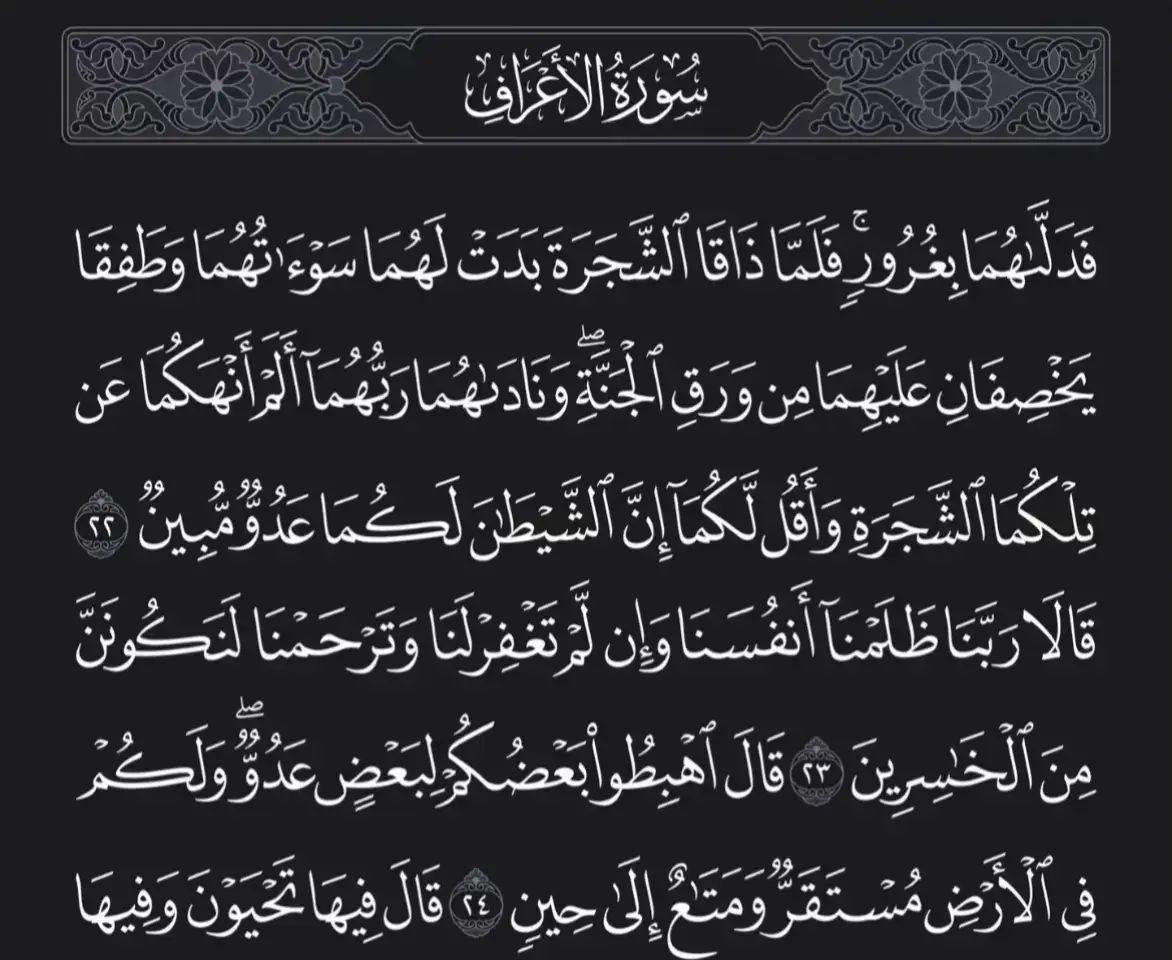 سُورَةُ الأَعْرَافِ
فَدَلَّىٰهُمَا بِغُرُورٍۚ فَلَمَّا ذَاقَا ٱلشَّجَرَةَ بَدَتْ لَهُمَا سَوْءَٰتُهُمَا وَطَفِقَا
يَخْصِفَانِ عَلَيْهِمَا مِن وَرَقِ ٱلْجَنَّةِۖ وَنَادَىٰهُمَا رَبُّهُمَآ أَلَمْ أَنْهَكُمَا عَن
تِلْكُمَا ٱلشَّجَرَةِ وَأَقُل لَّكُمَآ إِنَّ ٱلشَّيْطَٰنَ لَكُمَا عَدُوٌّ مُّبِينٌ ٢٢
قَالَا رَبَّنَا ظَلَمْنَآ أَنفُسَنَا وَإِن لَّمْ تَغْفِرْ لَنَا وَتَرْحَمْنَا لَنَكُونَنَّ
مِنَ ٱلْخَٰسِرِينَ ٢٣ قَالَ ٱهْبِطُوا۟ بَعْضُكُمْ لِبَعْضٍ عَدُوٌّۖ وَلَكُمْ
فِى ٱلْأَرْضِ مُسْتَقَرٌّ وَمَتَٰعٌ إِلَىٰ حِينٍ ٢٤ قَالَ فِيهَا تَحْيَوْنَ وَفِيهَا